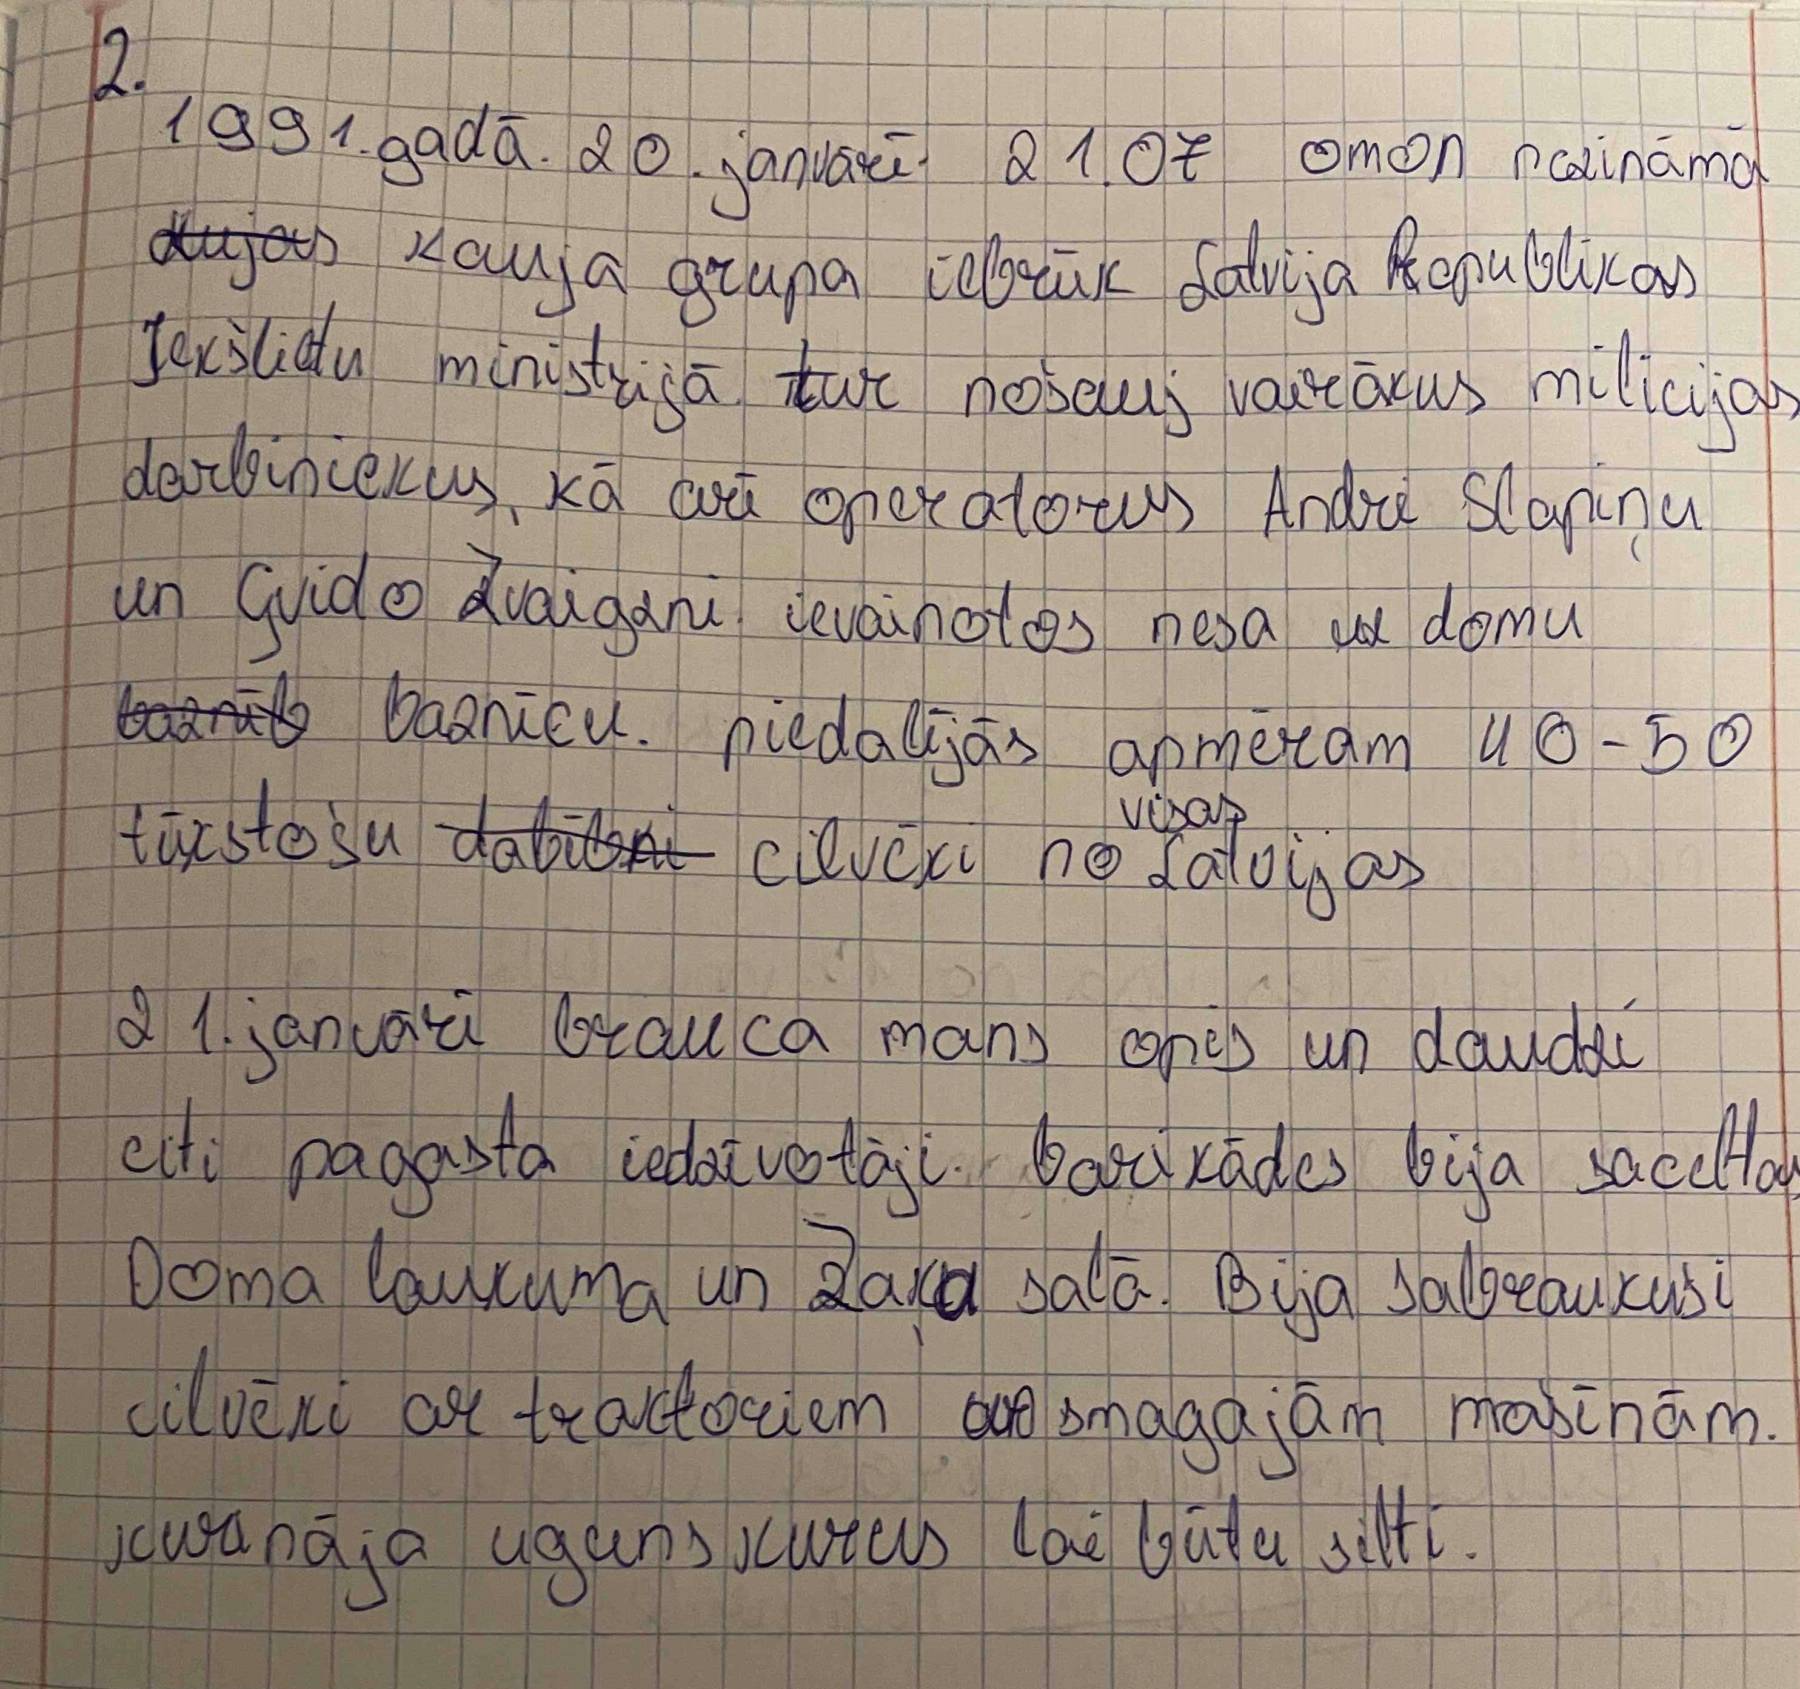 2.
1991.gadā. 20.janvārī 21.07 omon
kauja grupa iebrūk Latvija Republikas
Iekšlietu ministrijā tur nošauj vairākus milicijas
darbiniekus, kā arī operatorus Andri Slapiņu
un Gvido Zvaigzni. ievainotos nesa uz domu
baznīcu. piedalījās apmēram 40-50
tūkstošu cilvēki no visas Latvijas
21.janvārī brauca mans opis un daudzi
citi pagasta iedzīvotāji. barikādes bija saceltas
Doma laukuma un Zaķa salā. Bija sabraukuši
cilvēki ar traktoriem smagajām mašīnām.
kurināja ugunskurus lai būtu silti.